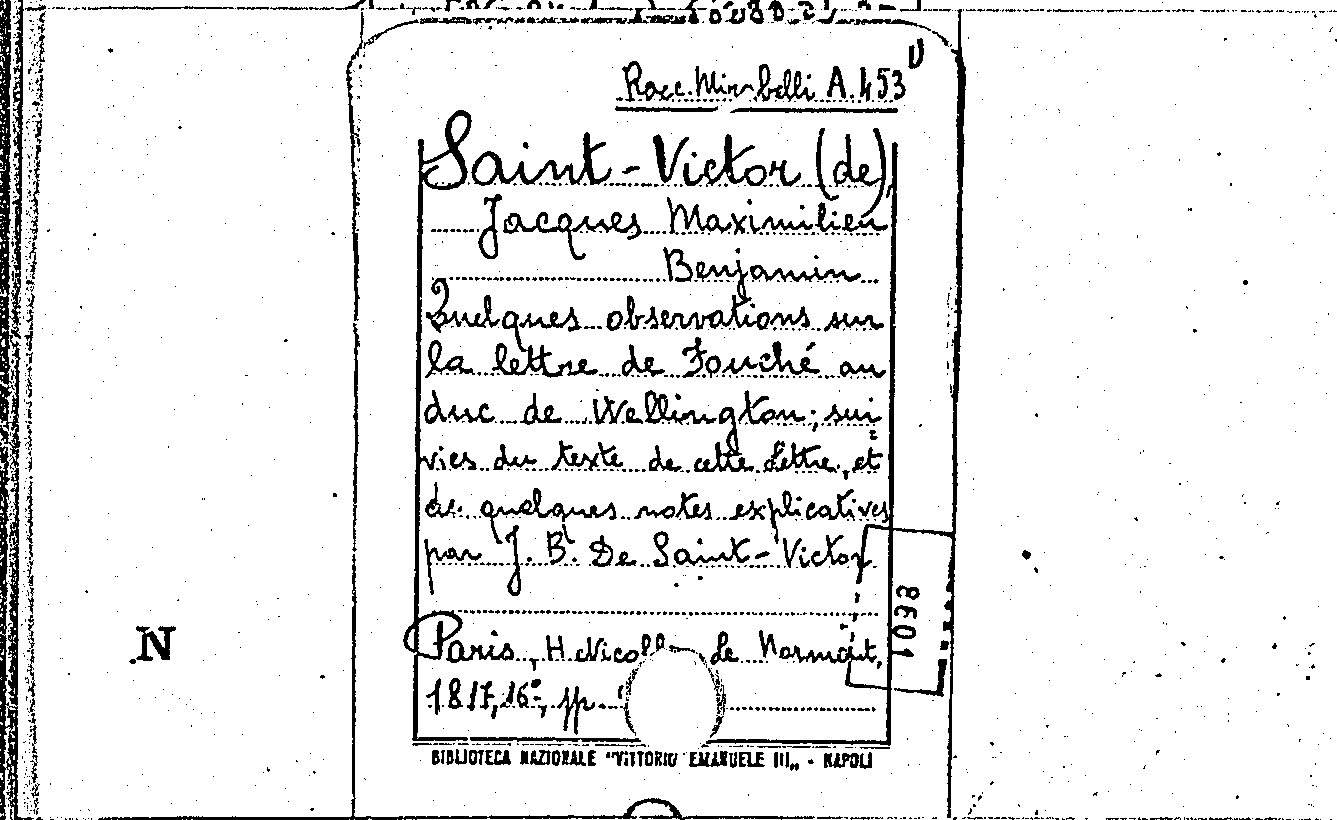 Racc. Mirabelli A. 453 U
Saint-Victor (de),
Jacques Maximilien
Benjamin
Quelques observations sur
la lettre de Fouché au
duc de Wellington; sui
vies du texte de cette lettre, et
de quelques notes explicatives
par J. B. De Saint-Victor
8601
N
Paris, H. Nicolle, Le Normant,
1817, 16°, pp.
BIBLIOTECA NAZIONALE "VITTORIO EMANUELE III„ - NAPOLI